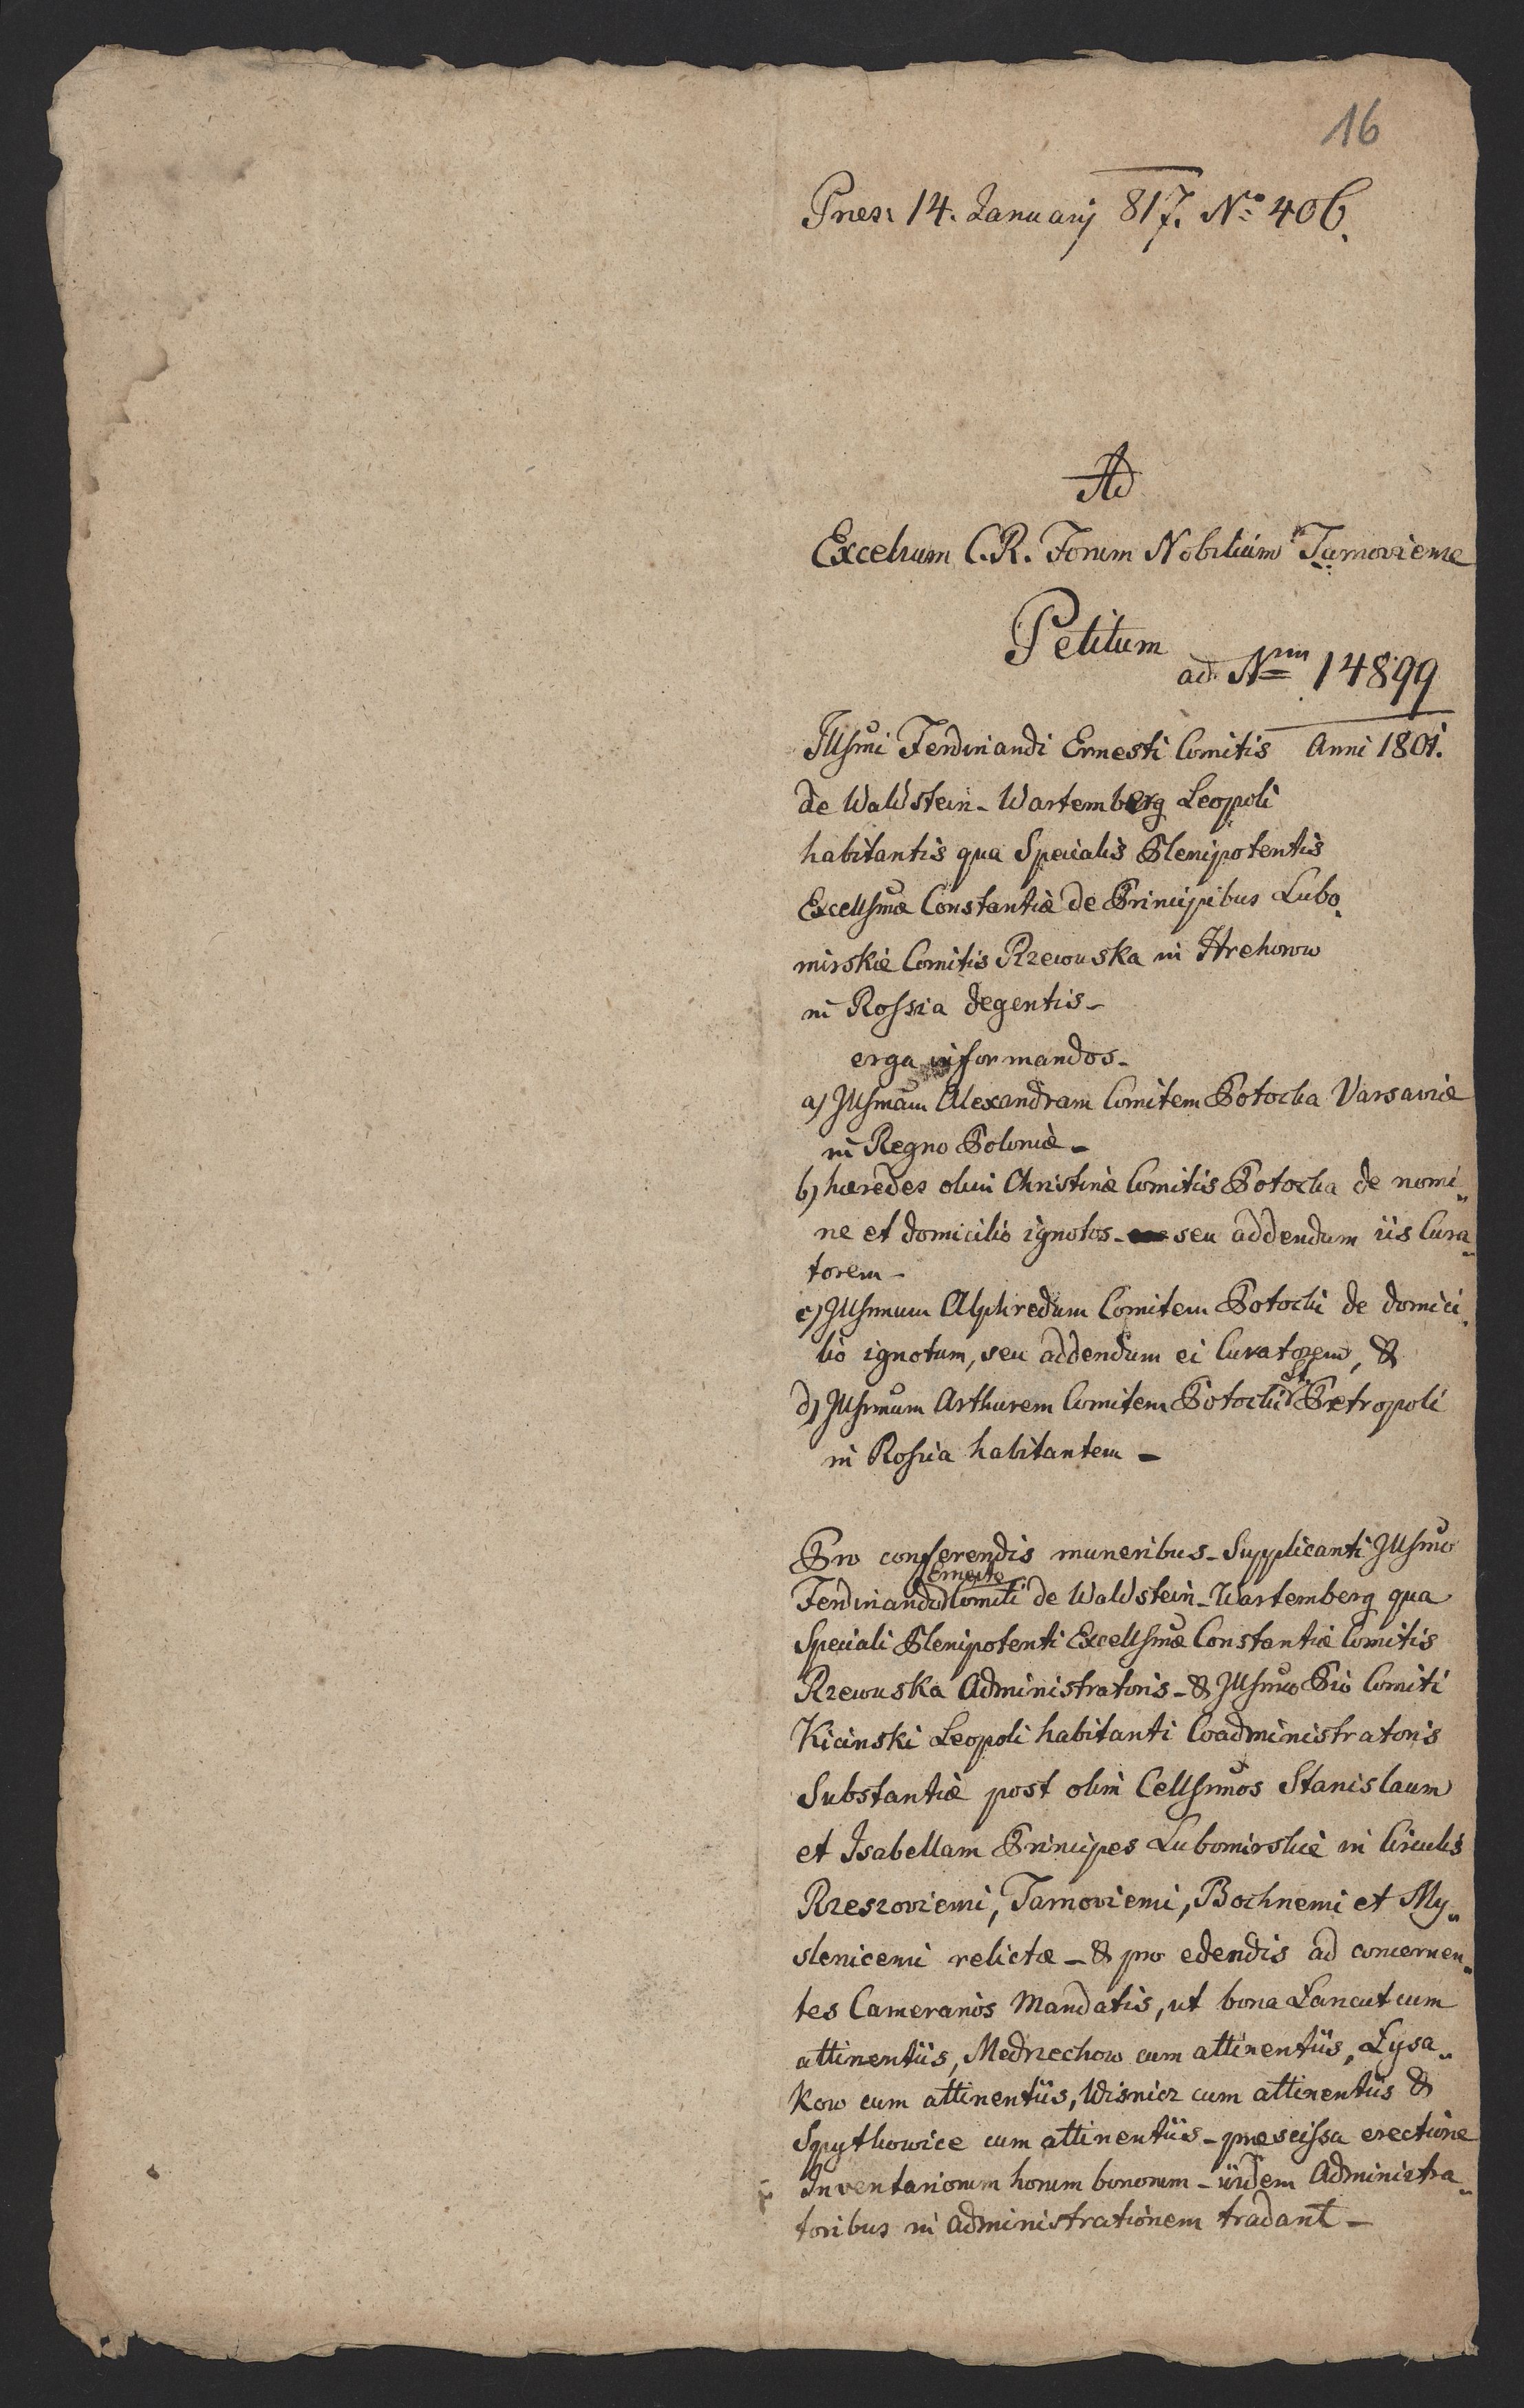 16
Pres: 14. Januarij 817. No 406.
Ad
Excelsum C. R. Forum Nobilium Tarnoviense
Petitum
ad Nrm 14899
Illsmi Ferdinandi Ernesti Comitis Anni 1801.
de Waldstein-Wartemberg Leopoli
habitantis qua Specialis Plenipotentis
Excellsmæ Constantiæ de Principibus Lubo„
mirskie Comitis Rzewuska in Hrehorow
in Rossia degentis-
erga informandos-
a) Illsmam Alexandram Comitem Potocka Varsaviæ
in Regno Poloniæ-
b) hæredes olim Christinæ Comitis Potocka de nomi„
ne et domicilio ignotos- seu addendum iis Cura„
torem-
c) Illsmum Alphredum Comitem Potocki de domici„
lio ignotum, seu addendum ei Curatorem, &
d) Illsmum Arthurem Comitem Potocki St. Petropoli
in Rossia habitantem-
Pro conferendis muneribus- Supplicanti Illsmo
Ernesto
Ferdinando Comiti de Waldstein-Wartemberg qua
Speciali Plenipotenti Excellsmæ Constantiæ Comitis
Rzewuska Administratoris-& Illsmo Pio Comiti
Kicinski Leopoli habitanti Coadministratoris
Substantiæ post olim Cellsmos Stanislaum
et Isabellam Principes Lubomirskie in Circulis
Rzeszoviensi, Tarnoviensi, Bochnensi et My„
slenicensi relictæ-& pro edendis ad concernen„
tes Camerarios Mandatis, ut bona Lancut cum
attinentiis, Medrzechow cum attinentiis, Lysa„
kow cum attinentiis, Wisnicz cum attinentiis &
Spytkowice cum attinentiis- præscissa erectione
Inventariorum horum bonorum- iisdem Administra„
toribus in administrationem tradant-